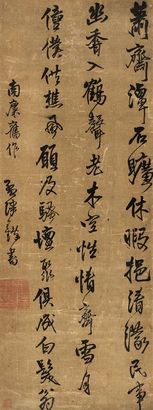 蕭齋潭石曠休暇挹清濛民事
幽香入鶴聲老木空性情齊雪月
僮僕似樵風顧及騷壇聚俱成白髮翁
南康舊作
書